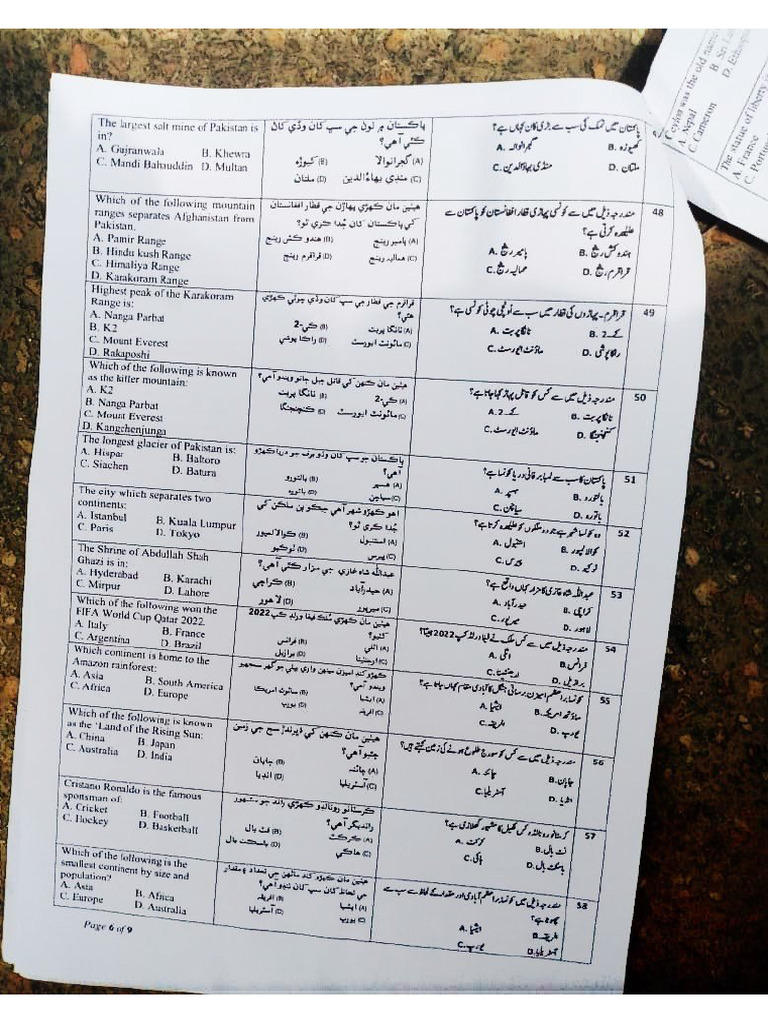 The largest salt mine of Pakistan is
in?
A. Gujranwala B. Khewra
C. Mandi Bahauddin D. Multan
پاڪستان ۾ لوڻ جي سڀ کان وڏي کاڻ
ڪٿي آهي؟
(A) گجرانوالا (B) کيوڙه
(C) منڊي بهاؤالدين (D) ملتان
پاکستان میں نمک کی سب سے بڑی کان کہاں ہے؟
A. گجرانوالہ B. کھیوڑہ
C. منڈی بہاؤالدین D. ملتان
Which of the following mountain
ranges separates Afghanistan from
Pakistan.
A. Pamir Range
B. Hindu kush Range
C. Himaliya Range
D. Karakoram Range
هيٺين مان ڪهڙي پهاڙن جي قطار افغانستان
کي پاڪستان کان جُدا ڪري ٿو؟
(A) پامير رينج (B) هندو ڪش رينج
(C) هماليه رينج (D) قراقرم رينج
48
مندرجہ ذیل میں سے کونسی پہاڑی قطار افغانستان کو پاکستان سے
علیحدہ کرتی ہے؟
A. پامیر رینج B. ہندو کش رینج
C. ہمالیہ رینج D. قراقرم رینج
Highest peak of the Karakoram
Range is:
A. Nanga Parbat
B. K2
C. Mount Everest
D. Rakaposhi
قراقرم جي قطار جي سڀ کان وڏي چوٽي ڪهڙي
هئي؟
(A) نانگا پربت (B) ڪي-2
(C) مائونٽ ايورسٽ (D) راڪا پوشي
49
قراقرم۔ پہاڑوں کی قطار میں سب سے اونچی چوٹی کونسی ہے؟
A. نانگا پربت B. کے 2
C. ماؤنٹ ایورسٹ D. راکا پوشی
Which of the following is known
as the killer mountain:
A. K2
B. Nanga Parbat
C. Mount Everest
D. Kangchenjunga
هيٺين مان ڪنهن کي قاتل جبل جاتو ويندو آهي؟
(A) ڪي-2 (B) نانگا پربت
(C) مائونٽ ايورسٽ
50
مندرجہ ذیل میں سے کس کو قاتل پہاڑ کہا جاتا ہے؟
A. کے 2 B. نانگا پربت
C. ماؤنٹ ایورسٹ D. کنچنجنگا
The longest glacier of Pakistan is:
A. Hispar B. Baltoro
C. Siachen D. Batura
پاڪستان جو سڀ کان وڏو برف جو درياءَ ڪهڙو
آهي؟
(A) هسپر (B) بالتورو
(C) سياچن (D) باتوره
51
پاکستان کا سب سے لمبا برفانی دریا کونسا ہے؟
A. ہسپر B. بالتورہ
C. سیاچن D. باتورہ
The city which separates two
continents:
A. Istanbul B. Kuala Lumpur
C. Paris D. Tokyo
اهو ڪهڙو شهر آهي جيڪو ٻن ملڪن کي
جُدا ڪري ٿو؟
(A) استنبول (B) ڪوالالمپور
(C) پيرس (D) ٽوڪيو
52
وہ کونسا شہر ہے جو دو ملکوں کو علیحدہ کرتا ہے؟
A. استنبول B. کوالالمپور
C. پیرس D. ٹوکیو
The Shrine of Abdullah Shah
Ghazi is in:
A. Hyderabad B. Karachi
C. Mirpur D. Lahore
عبدالله شاه غازي جي مزار ڪٿي آهي؟
(A) حيدرآباد (B) ڪراچي
(C) ميرپور (D) لاهور
53
عبداللہ شاہ غازی کا مزار کہاں واقع ہے؟
A. حیدرآباد B. کراچی
C. میرپور D. لاہور
Which of the following won the
FIFA World Cup Qatar 2022.
A. Italy B. France
C. Argentina D. Brazil
هيٺين مان ڪهڙي مُلڪ فيفا ورلڊ ڪپ 2022
کٽيو؟
(A) اٽلي (B) فرانس
(C) ارجنٽينا (D) برازيل
54
مندرجہ ذیل میں سے کس ملک نے فیفا ورلڈ کپ 2022 جیتا؟
A. اٹلی B. فرانس
C. ارجنٹینا D. برازیل
Which continent is home to the
Amazon rainforest:
A. Asia B. South America
C. Africa D. Europe
ويندو آهي؟
(A) ايشيا (B) سائوٿ آمريڪا
(C) افريقه (D) يورپ
55
کونسا براعظم ایمیزن برساتی جنگل کا آبادی مقام کہاں جاتا ہے؟
A. ایشیا B. ساؤتھ امریکہ
C. افریقہ D. یورپ
Which of the following is known
as the 'Land of the Rising Sun:
A. China B. Japan
C. Australia D. India
هيٺين مان ڪنهن کي اُڀرندڙ سج جي زمين
چئبو آهي؟
(A) چائنه (B) جاپان
(C) آسٽريليا (D) انڊيا
56
مندرجہ ذیل میں سے کس کو سورج طلوع ہونے کی زمین کہتے ہیں؟
A. چائنہ B. جاپان
C. آسٹریلیا D. انڈیا
Cristano Ronaldo is the famous
sportsman of:
A. Cricket B. Football
C. Hockey D. Basketball
ڪرسٽانو رونالڊو ڪهڙي راند جو مشهور
رانديگر آهي؟
(A) ڪرڪٽ (B) فٽ بال
(C) هاڪي (D) باسڪٽ بال
57
کرسٹانو رونالڈو کس کھیل کا مشہور کھلاڑی ہے؟
A. کرکٹ B. فٹ بال
C. ہاکی D. باسکٹ بال
Which of the following is the
smallest continent by size and
population?
A. Asia B. Africa
C. Europe D. Australia
هيٺين مان ڪهڙو کنڊ ماڻهن جي تعداد ۽ مقدار
جي لحاظ کان سڀ کان ننڍو آهي؟
(A) ايشيا (B) افريقه
(C) يورپ (D) آسٽريليا
58
مندرجہ ذیل میں سے کونسا براعظم آبادی اور مقدار کے لحاظ سے سب سے
چھوٹا ہے؟
A. ایشیا B. افریقہ
C. یورپ D. آسٹریلیا
Page 6 of 9
Ceylon was the old name
A. Nepal B. Sri La
C. Cameron D. Ethiop
The statue of liberty i
A. France
C. Portu